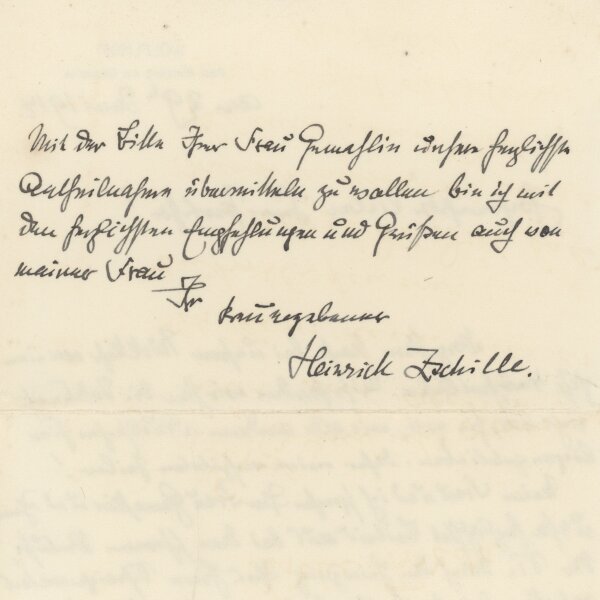 Mit der Bitte Ihrer Frau Gemahlin unsere herzlichste
Antheilnahme übermitteln zu wollen bin ich mit
den herzlichsten Empfehlungen und Grüßen auch von
meiner Frau
Ihr
treu ergebener
Heinrich Zschille.